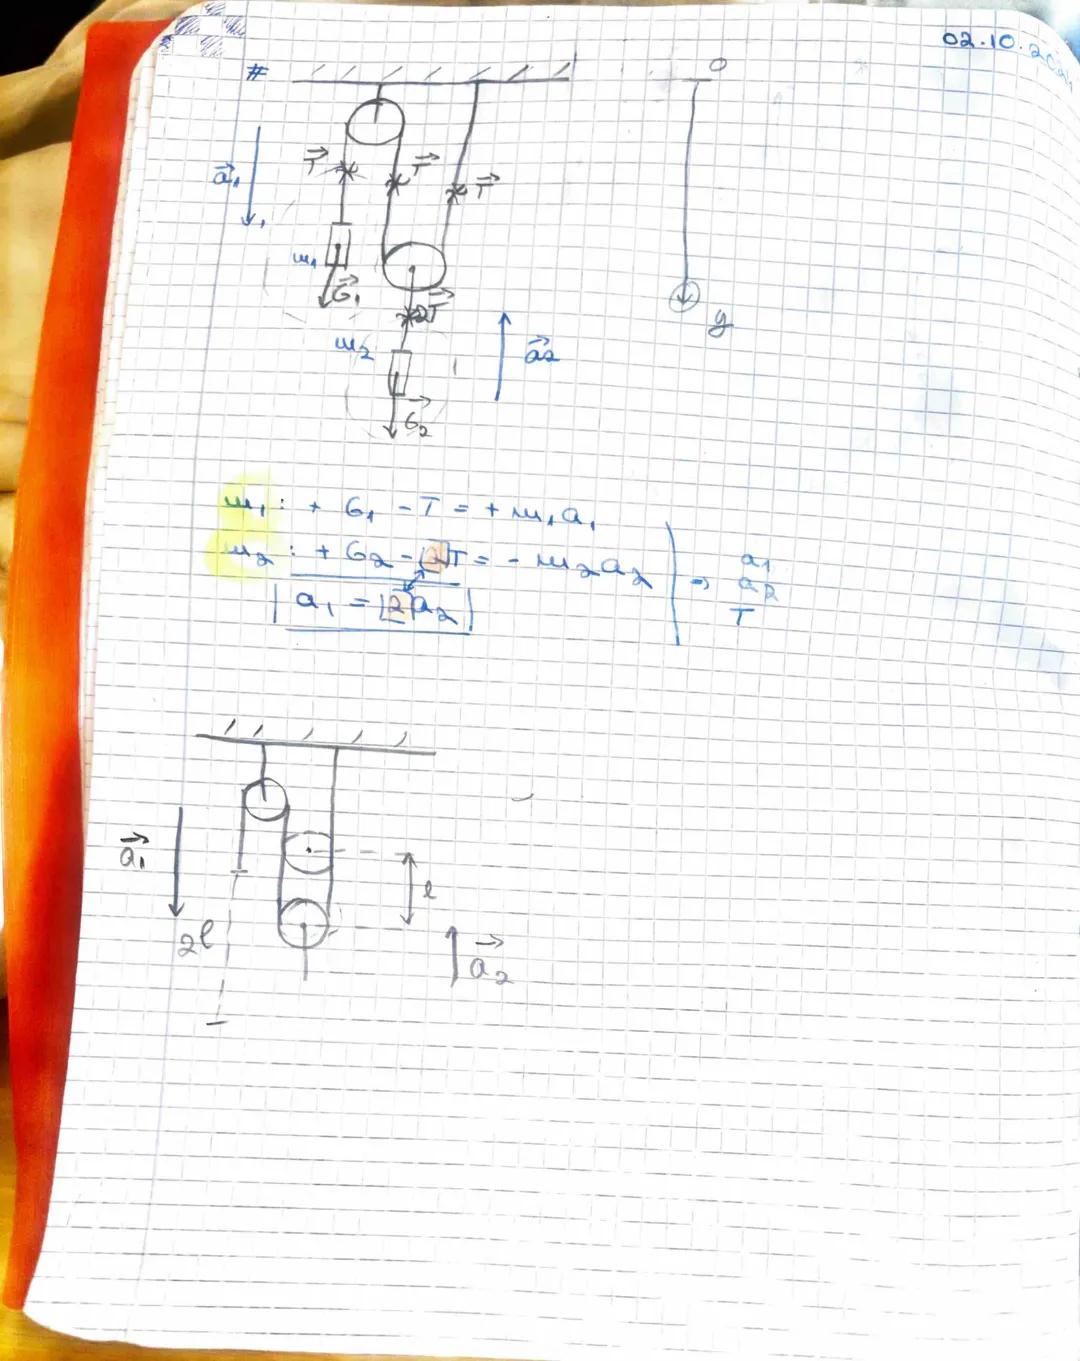 02.10.20
#
0
T
T
T
a₁
m₁
G₁
2T
m₂
a₂
G₂
y
m₁: + G₁ - T = + m₁a₁
m₂: + G₂ - 2T = - m₂a₂
a₁ = 2a₂
=> a₁
a₂
T
a₁
l
2l
a₂